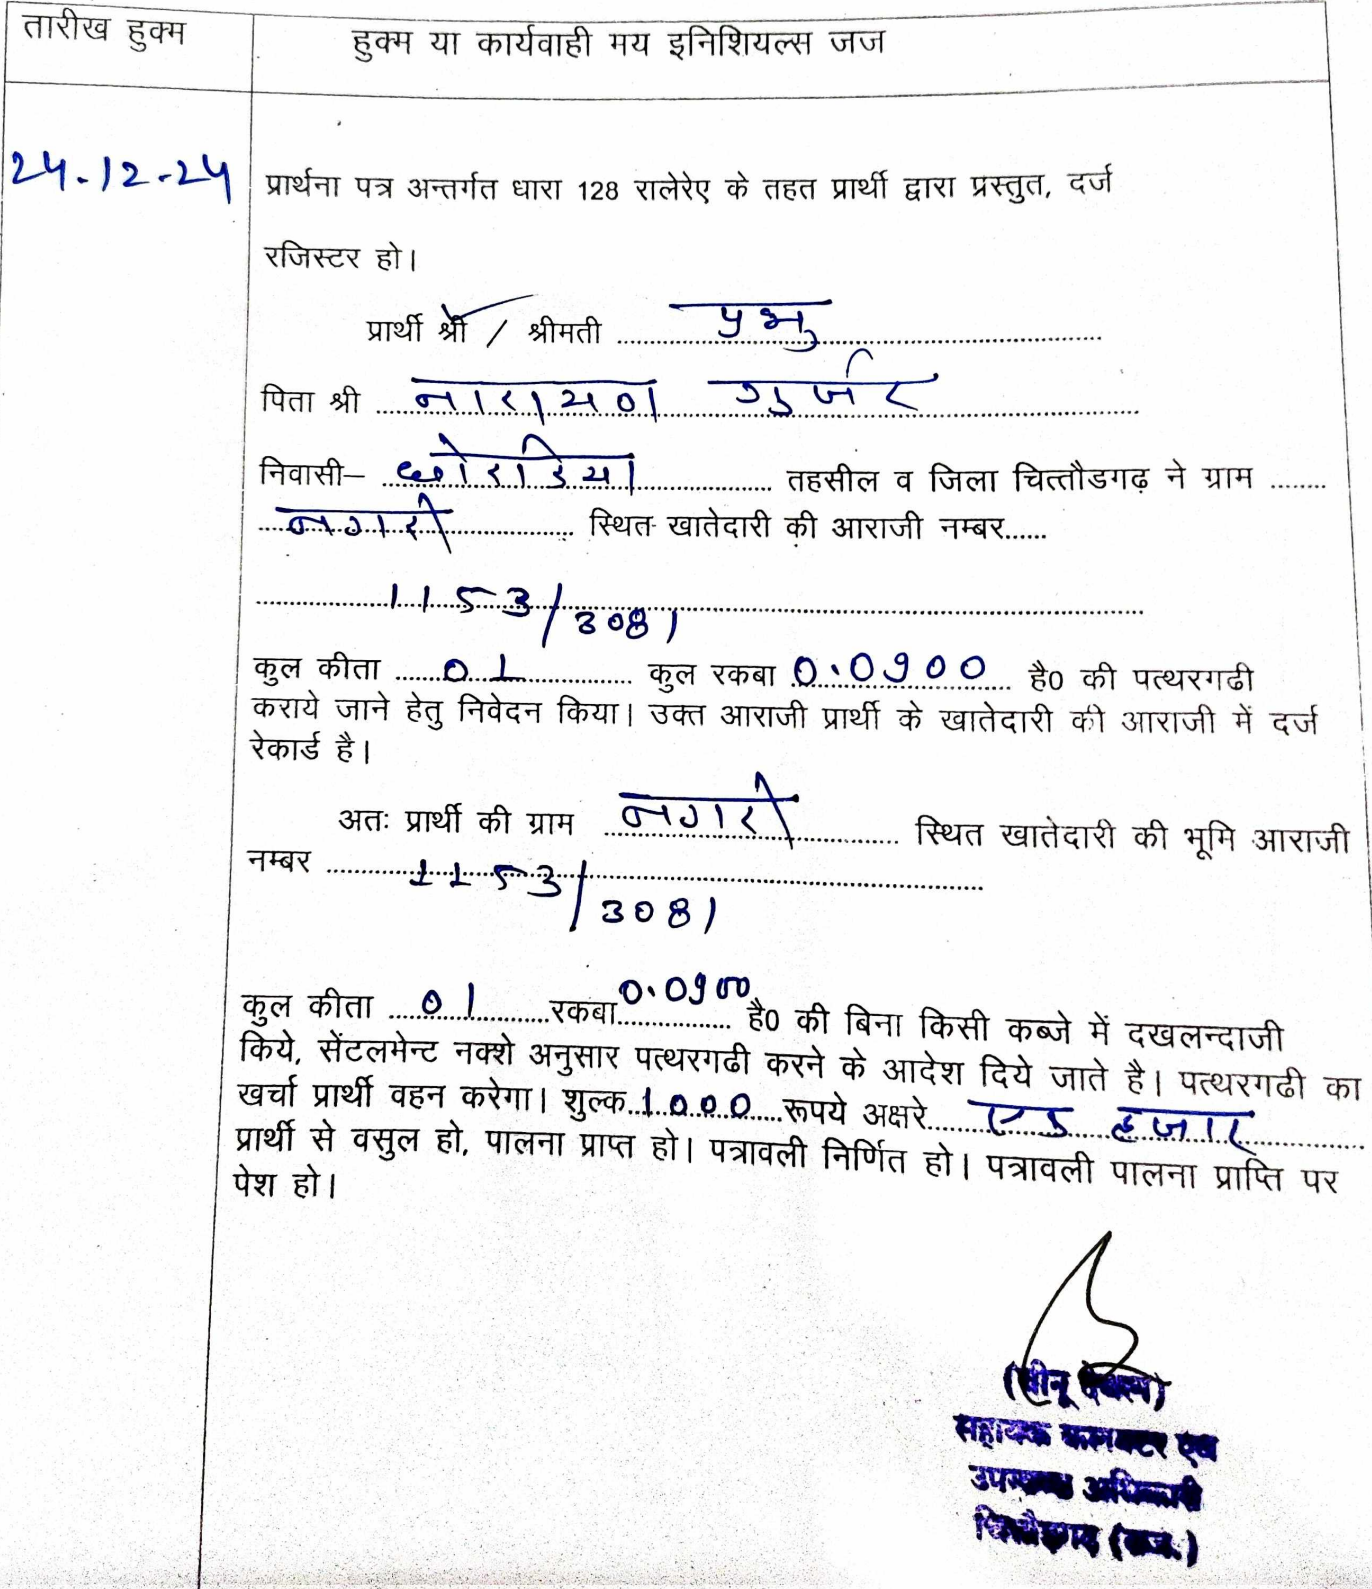 तारीख हुक्म
हुक्म या कार्यवाही मय इनिशियल्स जज
24-12-24
प्रार्थना पत्र अन्तर्गत धारा 128 रालेरेए के तहत प्रार्थी द्वारा प्रस्तुत, दर्ज
रजिस्टर हो।
प्रार्थी श्री / श्रीमती ........ प्रभु ........
पिता श्री ........ नारायण गुर्जर ........
निवासी– ........ तहसील व जिला चित्तौडगढ़ ने ग्राम ........
........ नगरी ........ स्थित खातेदारी की आराजी नम्बर......
........ 1153/3081 ........
कुल कीता ........ 01 ........ कुल रकबा 0.0900 है0 की पत्थरगढी
कराये जाने हेतु निवेदन किया। उक्त आराजी प्रार्थी के खातेदारी की आराजी में दर्ज
रेकार्ड है।
अतः प्रार्थी की ग्राम ........ नगरी ........ स्थित खातेदारी की भूमि आराजी
नम्बर ........ 1153/3081 ........
कुल कीता ..... 01 ..... रकबा 0.0900 है0 की बिना किसी कब्जे में दखलन्दाजी
किये, सेंटलमेन्ट नक्शे अनुसार पत्थरगढी करने के आदेश दिये जाते है। पत्थरगढी का
खर्चा प्रार्थी वहन करेगा। शुल्क..1000.....रूपये अक्षरे..... एक हजार ........
प्रार्थी से वसुल हो, पालना प्राप्त हो। पत्रावली निर्णित हो। पत्रावली पालना प्राप्ति पर
पेश हो।
सहायक कलक्टर एवं
उपखण्ड अधिकारी
चित्तौड़गढ़ (राज.)